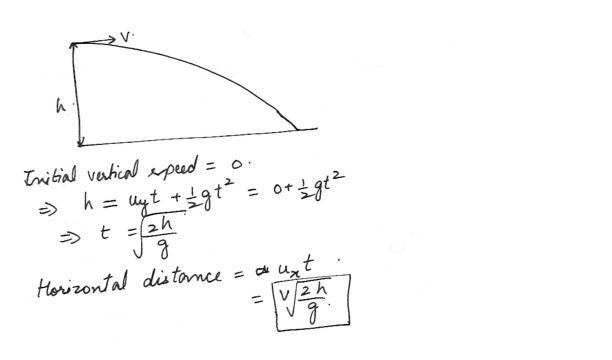 V.
h.
Initial vertical speed = 0.
⇒ h = u_y t + ½gt² = 0 + ½gt²
⇒ t = √(2h/g)
Horizontal distance = u_x t.
= V√(2h/g).